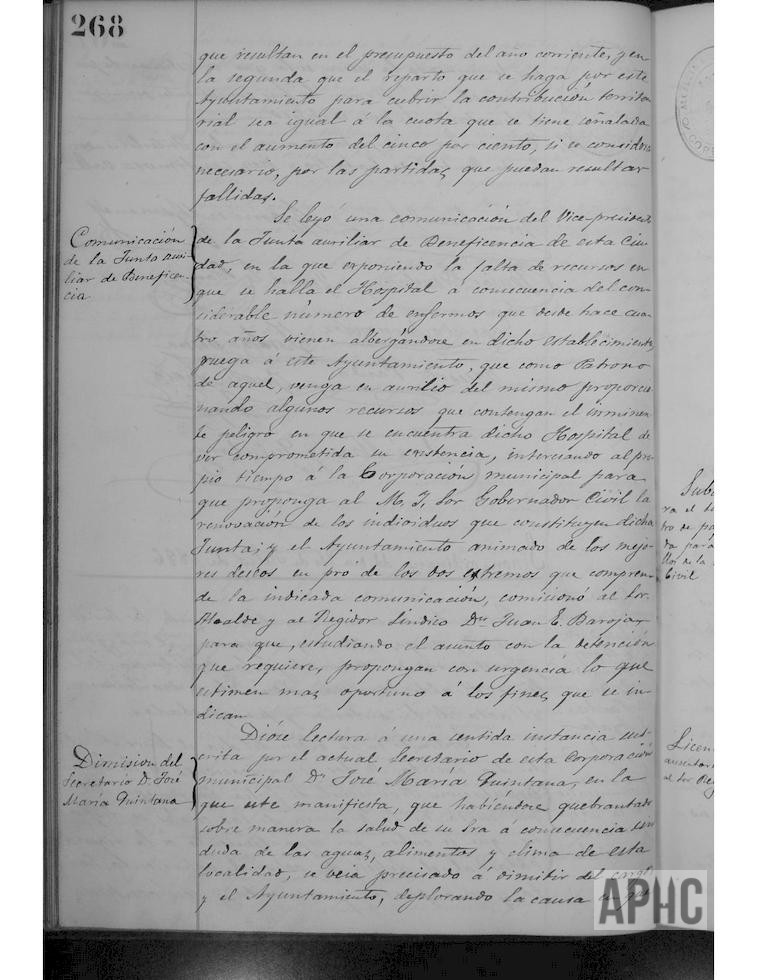 268
que resultan en el presupuesto del año corriente, y en
la segunda que el reparto que se haga por este
Ayuntamiento para cubrir la contribución territo
rial sea igual á la cuota que se tiene señalada
con el aumento del cinco por ciento, si se considera
necesario, por las partidas que puedan resultar
fallidas.
Comunicación
de la Junta auxi
liar de Beneficen
cia
Se leyó una comunicación del Vice-presidente
de la Junta auxiliar de Beneficencia de esta Ciu
dad, en la que exponiendo la falta de recursos en
que se halla el Hospital á consecuencia del con
siderable número de enfermos que desde hace cua
tro años vienen albergándose en dicho establecimiento,
ruega á este Ayuntamiento, que como Patrono
de aquel, venga en auxilio del mismo proporcio
nando algunos recursos que contengan el inminen
te peligro en que se encuentra dicho Hospital de
ver comprometida su existencia, interesando al pro
pio tiempo á la Corporación municipal para
que proponga al M. I. Sor Gobernador Civil la
renovación de los individuos que constituyen dicha
Junta; y el Ayuntamiento animado de los mejo-
res deseos en pró de los dos extremos que compren-
de la indicada comunicación, comisionó al Sor.
Alcalde y al Regidor Síndico Dn Juan E. Baroja,
para que, estudiando el asunto con la detención
que requiere, propongan con urgencia lo que
estimen mas oportuno á los fines que se in-
dican
Dimision del
Secretario D. José
María Quintana
Dióse lectura á una sentida instancia sus-
crita por el actual Secretario de esta Corporación
municipal Dn José María Quintana, en la
que este manifiesta, que habiéndose quebrantado
sobre manera la salud de su Sra á consecuencia sin
duda de las aguas, alimentos y clima de esta
localidad, se veia precisado á dimitir del cargo;
y el Ayuntamiento, deplorando la causa en que
ra el
tro de
da para
llos de la
Civil
Licen
al Sor Reg
APHC